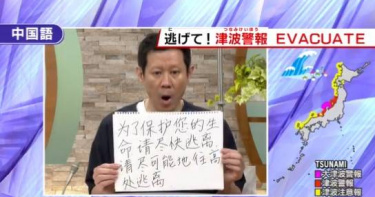 中国語
逃げて!津波警報 EVACUATE
つなみけいほう
为了保护您的生
命请尽快逃离
请尽可能地往高
处逃离
TSUNAMI
大津波警報
津波警報
津波注意報